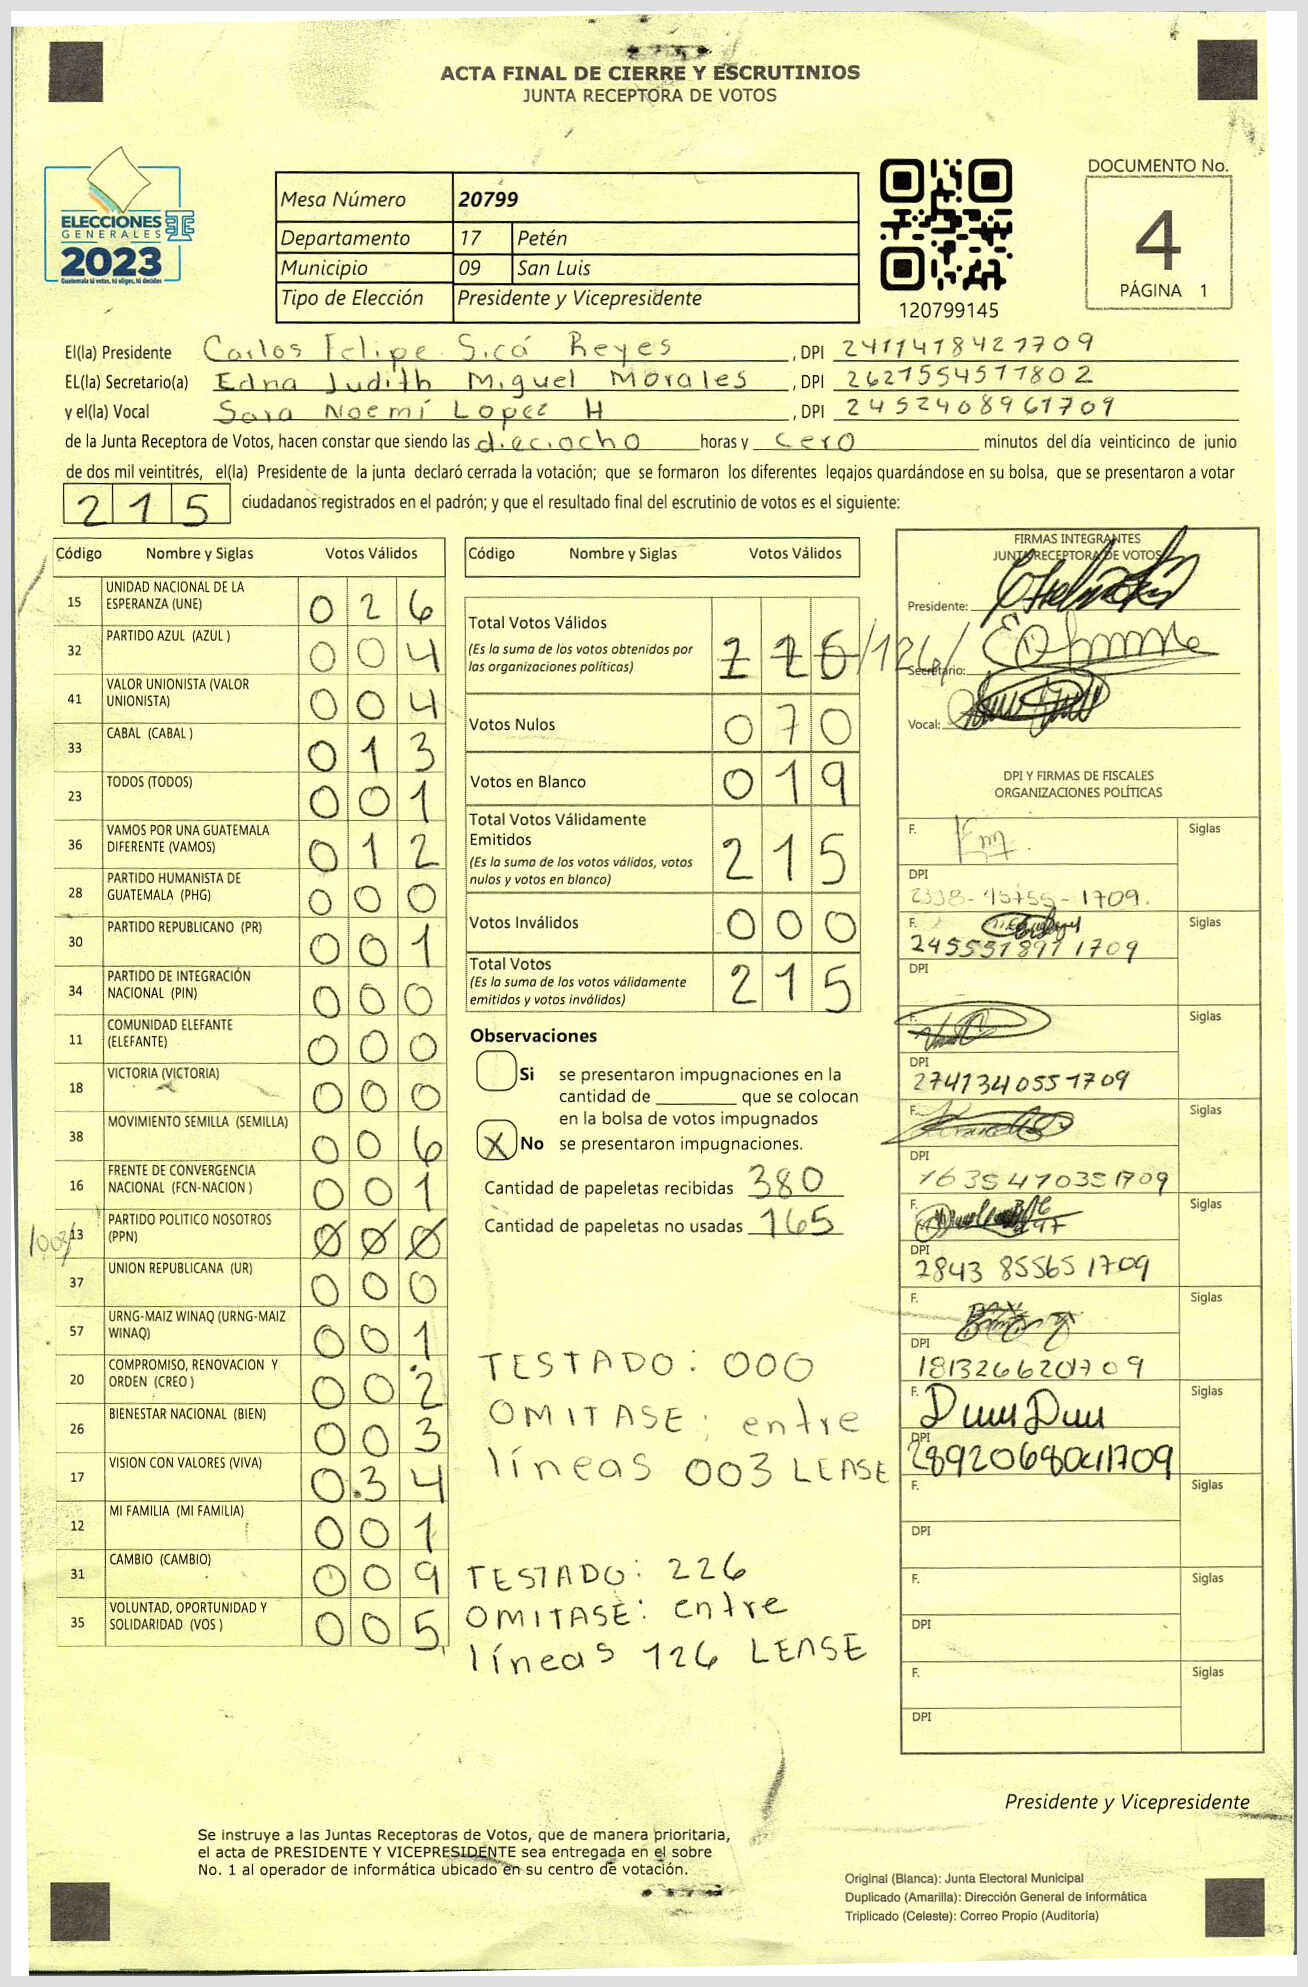 ACTA FINAL DE CIERRE Y ESCRUTINIOS
JUNTA RECEPTORA DE VOTOS
ELECCIONES
GENERALES
2023
Guatemala tú votas, tú eliges, tú decides
Mesa Número 20799
Departamento 17 Petén
Municipio 09 San Luis
Tipo de Elección Presidente y Vicepresidente
120799145
DOCUMENTO No.
4
PÁGINA 1
El(la) Presidente Carlos Felipe Sicá Reyes, DPI 2411418421709
EL(la) Secretario(a) Edna Judith Miguel Morales, DPI 2621554571802
y el(la) Vocal Sara Noemí Lopez H, DPI 2452408961709
de la Junta Receptora de Votos, hacen constar que siendo las dieciocho horas y cero minutos del día veinticinco de junio
de dos mil veintitrés, el(la) Presidente de la junta declaró cerrada la votación; que se formaron los diferentes legajos quardándose en su bolsa, que se presentaron a votar
215 ciudadanos registrados en el padrón; y que el resultado final del escrutinio de votos es el siguiente:
Código Nombre y Siglas Votos Válidos
15 UNIDAD NACIONAL DE LA ESPERANZA (UNE) 026
32 PARTIDO AZUL (AZUL ) 004
41 VALOR UNIONISTA (VALOR UNIONISTA) 004
33 CABAL (CABAL ) 013
23 TODOS (TODOS) 001
36 VAMOS POR UNA GUATEMALA DIFERENTE (VAMOS) 012
28 PARTIDO HUMANISTA DE GUATEMALA (PHG) 000
30 PARTIDO REPUBLICANO (PR) 001
34 PARTIDO DE INTEGRACIÓN NACIONAL (PIN) 000
11 COMUNIDAD ELEFANTE (ELEFANTE) 000
18 VICTORIA (VICTORIA) 000
38 MOVIMIENTO SEMILLA (SEMILLA) 006
16 FRENTE DE CONVERGENCIA NACIONAL (FCN-NACION ) 001
/003/ 13 PARTIDO POLITICO NOSOTROS (PPN) 000
37 UNION REPUBLICANA (UR) 000
57 URNG-MAIZ WINAQ (URNG-MAIZ WINAQ) 001
20 COMPROMISO, RENOVACION Y ORDEN (CREO ) 002
26 BIENESTAR NACIONAL (BIEN) 003
17 VISION CON VALORES (VIVA) 034
12 MI FAMILIA (MI FAMILIA) 001
31 CAMBIO (CAMBIO) 009
35 VOLUNTAD, OPORTUNIDAD Y SOLIDARIDAD (VOS ) 005
Código Nombre y Siglas Votos Válidos
Total Votos Válidos
(Es la suma de los votos obtenidos por
las organizaciones políticas)
226 /126/
Votos Nulos 070
Votos en Blanco 019
Total Votos Válidamente
Emitidos
(Es la suma de los votos válidos, votos
nulos y votos en blanco)
215
Votos Inválidos 000
Total Votos
(Es la suma de los votos válidamente
emitidos y votos inválidos)
215
Observaciones
Si se presentaron impugnaciones en la
cantidad de ________ que se colocan
en la bolsa de votos impugnados
X No se presentaron impugnaciones.
Cantidad de papeletas recibidas 380
Cantidad de papeletas no usadas 165
TESTADO: 000
OMITASE: entre
líneas 003 LEASE
TESTADO: 226
OMITASE: entre
líneas 126 LEASE
FIRMAS INTEGRANTES
JUNTA RECEPTORA DE VOTOS
Presidente:
Secretario:
Vocal:
DPI Y FIRMAS DE FISCALES
ORGANIZACIONES POLÍTICAS
F. Siglas
DPI
F. Siglas
2455518971709
DPI
F. Siglas
DPI
2741340551709
F. Siglas
DPI
1635470351709
F. Siglas
DPI
2843 85565 1709
F. Siglas
DPI
1813266201709
F. Siglas
DPI
F. Siglas
DPI
F. Siglas
DPI
F. Siglas
DPI
Presidente y Vicepresidente
Se instruye a las Juntas Receptoras de Votos, que de manera prioritaria,
el acta de PRESIDENTE Y VICEPRESIDENTE sea entregada en el sobre
No. 1 al operador de informática ubicado en su centro de votación.
Original (Blanca): Junta Electoral Municipal
Duplicado (Amarilla): Dirección General de Informática
Triplicado (Celeste): Correo Propio (Auditoría)